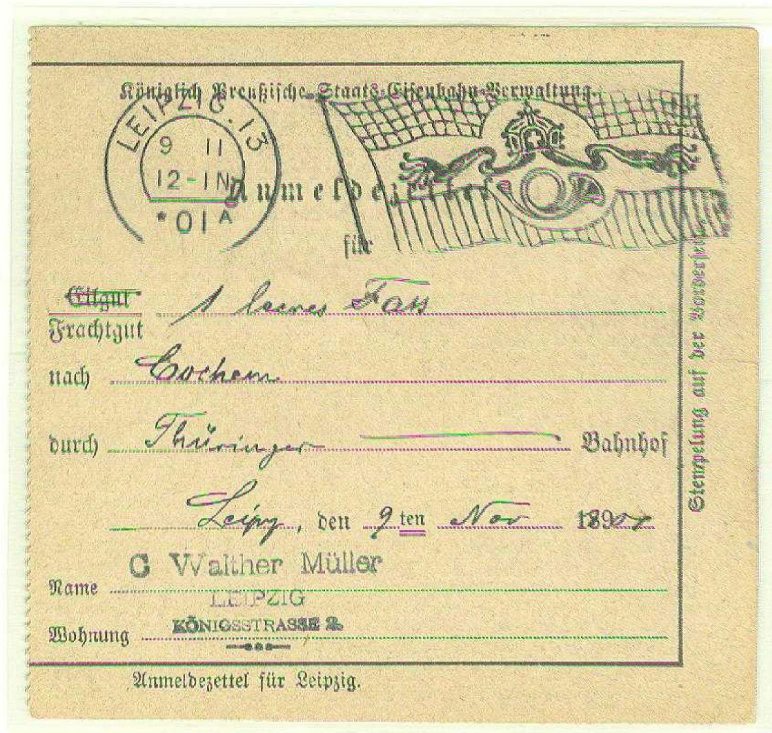 Königlich Preußische Staats-Eisenbahn-Verwaltung.
LEIPZIG.13
9 11
12-1N
*01A
Anmeldezettel
für
Eilgut
Frachtgut 1 leeres Fass
nach Cochem
durch Thüringer Bahnhof
Leipzg, den 9ten Nov 1901
C Walther Müller
Name
LEIPZIG
Wohnung KÖNIGSSTRASSE 2.
Anmeldezettel für Leipzig.
Stempelung auf der Vorderseite